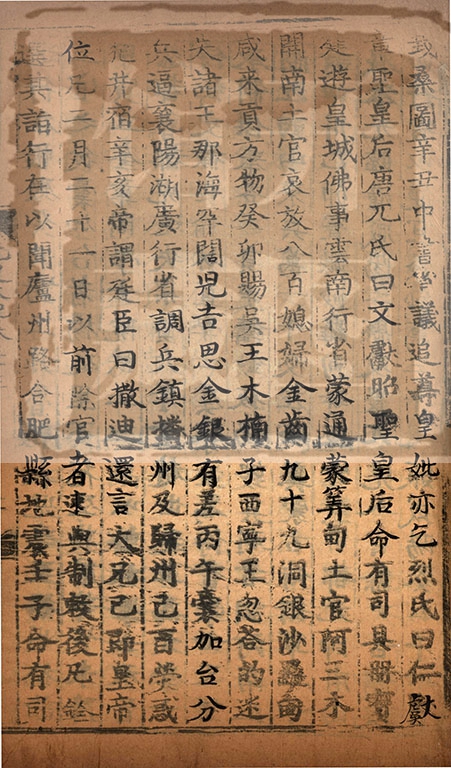 桑圖辛丑中書省議追尊皇妣亦乞烈氏曰仁獻
章聖皇后唐兀氏曰文獻昭聖皇后命有司具册寶
遊皇城佛事雲南行省蒙通蒙算甸土官阿三木
開南土官哀放八百媳婦金齒九十九洞銀沙羅甸
咸来貢方物癸卯賜吳王木楠子西寧王忽答的迷
失諸王那海罕闊兒吉思金銀有差丙午囊加台分
兵逼襄陽湖廣行省調兵鎮播州及歸州己百學惑
犯井宿辛亥帝謂廷臣曰撒迪還言大兄已即皇帝
位凡二月二十一日以前除官者速與制敕後凡銓
選其詣行在以聞廬州路合肥縣地震壬子命有司